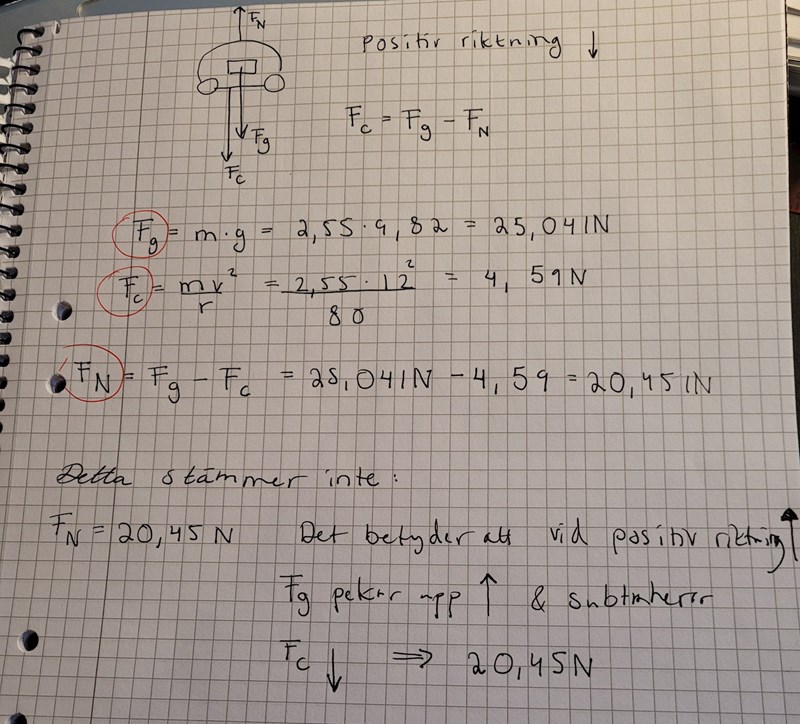 F_N
Positiv riktning ↓
F_g
F_c
F_c = F_g - F_N
F_g = m · g = 2,55 · 9,82 = 25,041N
F_c = mv²/r = 2,55 · 12²/80 = 4,59N
F_N = F_g - F_c = 25,041N - 4,59 = 20,451N
Detta stämmer inte:
F_N = 20,45N Det betyder att vid positiv riktning ↑
F_g pekar upp ↑ & subtraherar
F_c ↓ ⇒ 20,45N